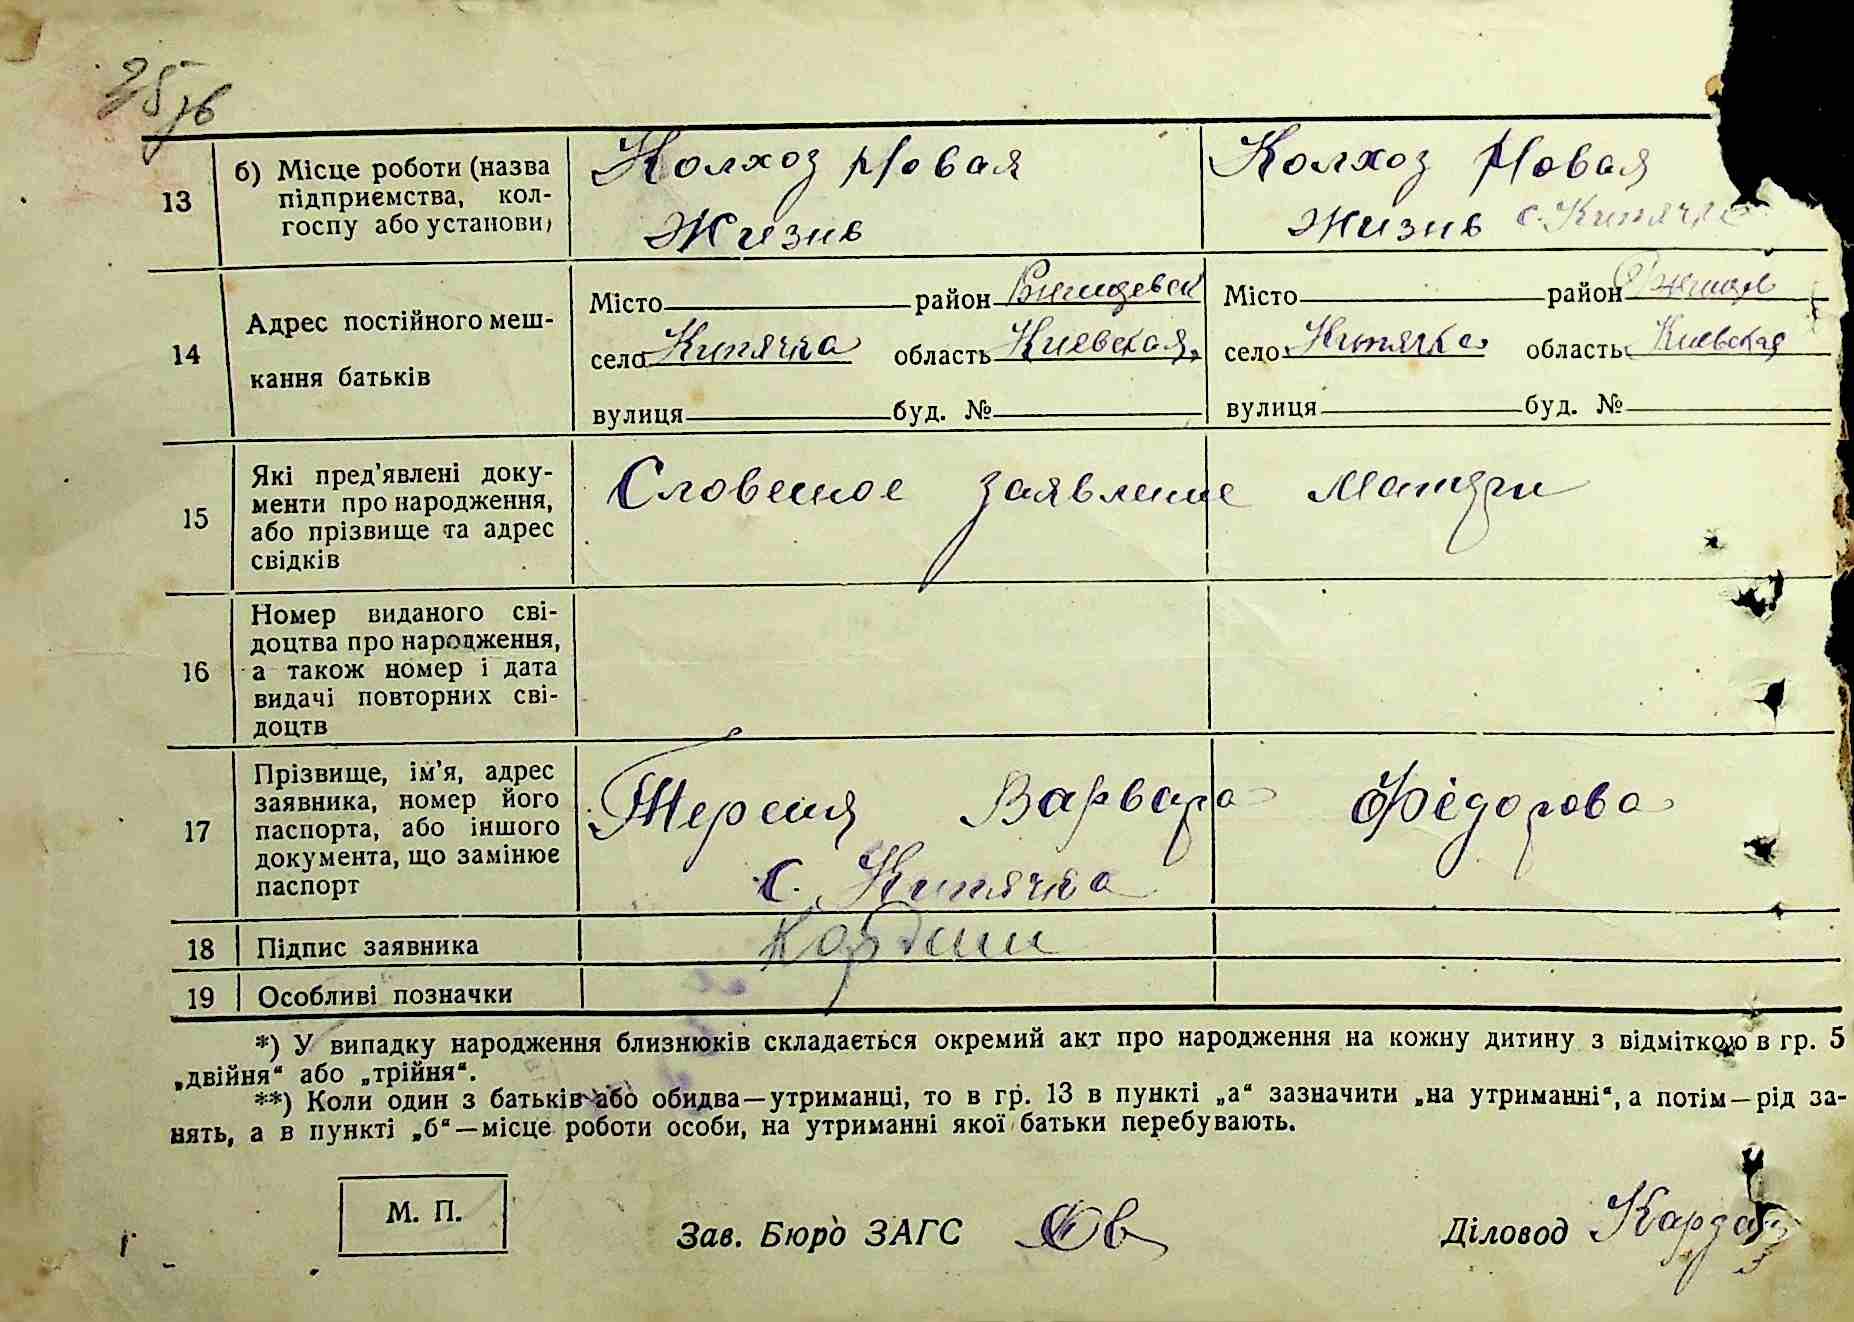 35зв
13 б) Місце роботи (назва Колхоз Новая Колхоз Новая
підприємства, кол-
госпу або установи) Жизнь Жизнь с. Кипячка
14 Адрес постійного меш-
кання батьків
Місто район Місто район
село Кипячка область Киевская село Кипячка область Киевская
вулиця буд. № вулиця буд. №
15 Які пред'явлені доку-
менти про народження, Словесное заявление матери
або прізвище та адрес
свідків
16 Номер виданого сві-
доцтва про народження,
а також номер і дата
видачі повторних сві-
доцтв
17 Прізвище, ім'я, адрес
заявника, номер його Варвара Фёдорова
паспорта, або іншого
документа, що замінює с. Кипячка
паспорт
18 Підпис заявника
19 Особливі позначки
*) У випадку народження близнюків складається окремий акт про народження на кожну дитину з відміткою в гр. 5
„двійня“ або „трійня“.
**) Коли один з батьків або обидва—утриманці, то в гр. 13 в пункті „а“ зазначити „на утриманні“, а потім—рід за-
нять, а в пункті „б“—місце роботи особи, на утриманні якої батьки перебувають.
М. П.
Зав. Бюро ЗАГС Діловод